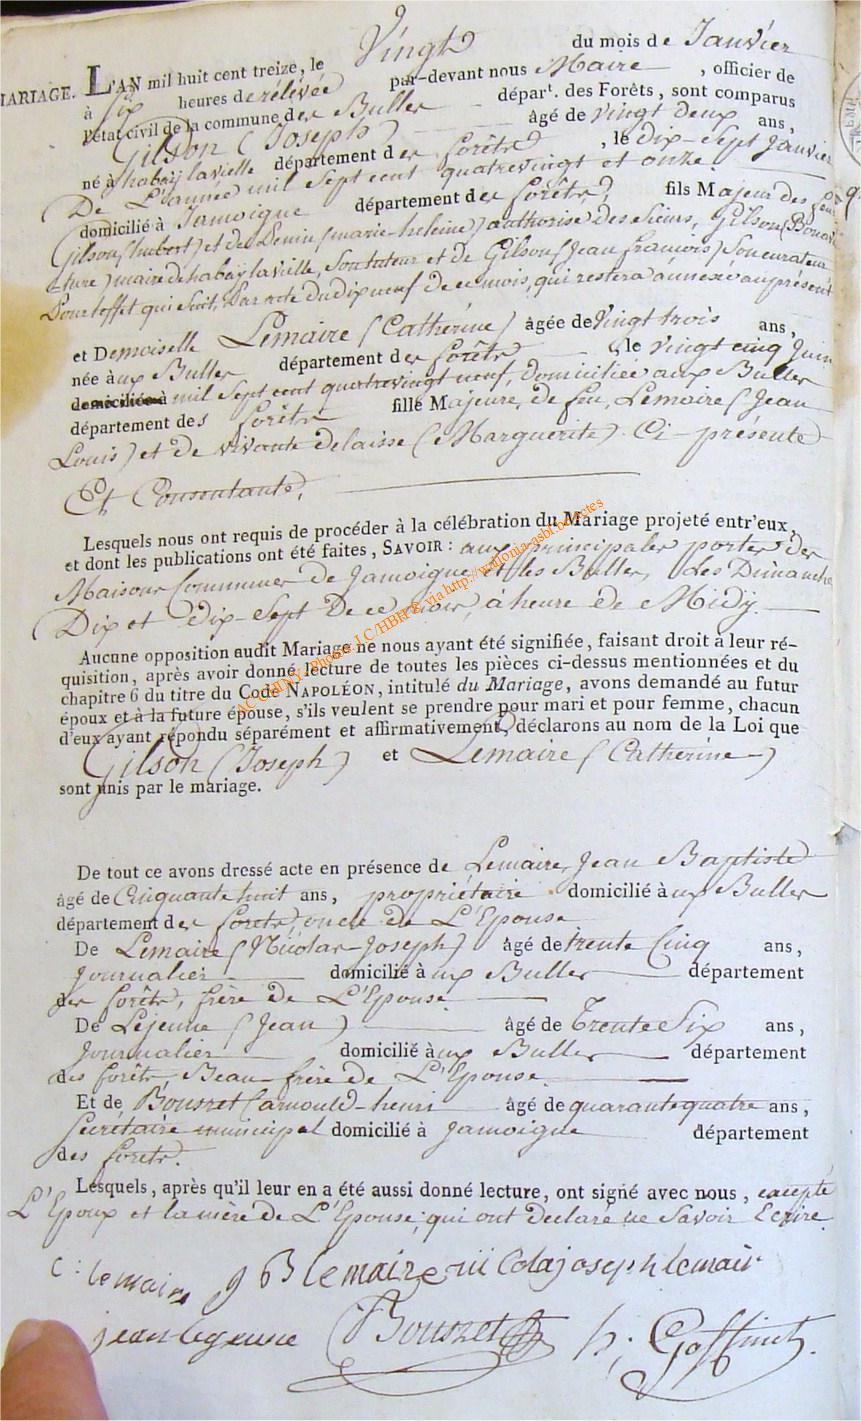 MARIAGE. L'AN mil huit cent treize, le Vingt du mois de Janvier
à Six heures de rélévée par-devant nous Maire, officier de
l'état civil de la commune des Buller départ. des Forêts, sont comparus
Gilson (Joseph) âgé de vingt deux ans,
né à habay la vielle département des forêts, le dix-Sept Janvier
De L'année mil Sept cent quatrevingt et onze.
domicilié à Jamoigne département des forêts, fils Majeur des feu
Gilson (hubert) et de Lenin (marie-heleine) authorise des Sieurs, Gilson (Bonav
ture) maire de habay la vielle, Son tuteur et de Gilson (Jean francois) Son curateur
Pour l'effet qui Suit, Par acte du dix neuf de ce mois, qui restera annexé au présent
et Demoiselle Lemaire (Catherine) âgée de Vingt trois ans,
née à ux Buller département des forêts, le vingt cinq Juin
domiciliée à mil Sept cent quatrevingt neuf, domiciliée aux Buller
département des forêts fille Majeure, de feu, Lemaire (Jean
Louis) et de vivante delaisse (Marguerite). Ci-présente
Et Consentante,
Lesquels nous ont requis de procéder à la célébration du Mariage projeté entr'eux,
et dont les publications ont été faites, SAVOIR: aux principales portes des
Maisons Communes de Jamoigne et les Buller, les Dimanche
Dix et dix-Sept de ce mois, à heure de Midy.
ACC/HINY, Photos J.C/HBH &, via http://wallonia-asbl.be/actes
Aucune opposition audit Mariage ne nous ayant été signifiée, faisant droit à leur ré-
quisition, après avoir donné lecture de toutes les pièces ci-dessus mentionnées et du
chapitre 6 du titre du Code NAPOLÉON, intitulé du Mariage, avons demandé au futur
époux et à la future épouse, s'ils veulent se prendre pour mari et pour femme, chacun
d'eux ayant répondu séparément et affirmativement, déclarons au nom de la Loi que
Gilson (Joseph) et Lemaire (Catherine)
sont unis par le mariage.
De tout ce avons dressé acte en présence de Lemaire, Jean Baptiste
âgé de Cinquante huit ans, propriétaire domicilié à ux Buller
département des forets, oncle de L'Epouse
De Lemaire (Nicolas-Joseph) âgé de trente Cinq ans,
Journalier domicilié à ux Buller département
des forêts, frère de L'Epouse
De Lejeune (Jean) âgé de Trente Six ans,
Journalier domicilié à ux Buller département
des forêts, Beau-frère de L'Epouse.
Et de Bouszet (arnould-henri âgé de quarante quatre ans,
Secrétaire municipal domicilié à Jamoigne département
des forets.
Lesquels, après qu'il leur en a été aussi donné lecture, ont signé avec nous, excepté
L'Epoux et la mère de L'Epouse, qui ont declaré ne Savoir Ecrire.
C: lemaire J B lemaire nicolajoseph lemair
jean lejeune Bouszet h: Goffinet